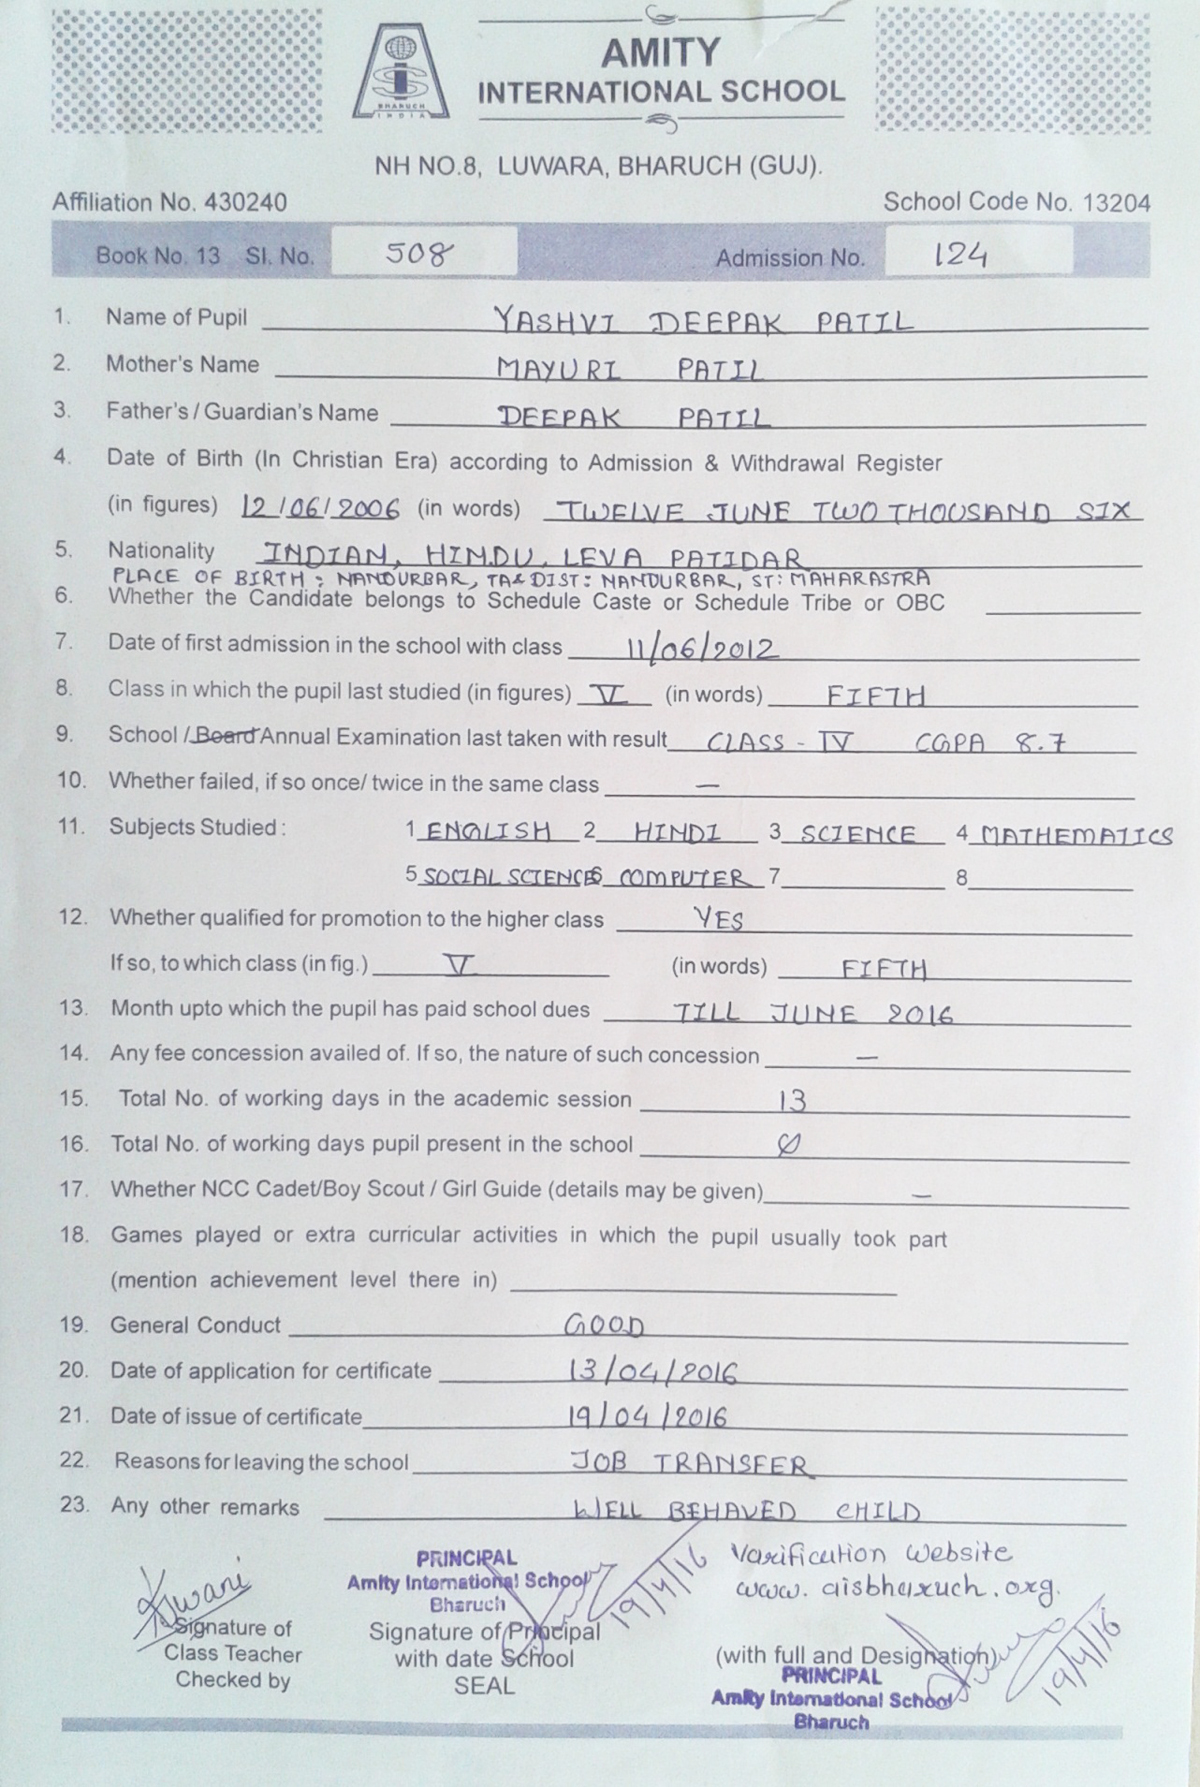 AMITY
INTERNATIONAL SCHOOL
BHARUCH
INDIA
NH NO.8, LUWARA, BHARUCH (GUJ).
Affiliation No. 430240 School Code No. 13204
Book No. 13 Sl. No. 508 Admission No. 124
1. Name of Pupil YASHVI DEEPAK PATIL
2. Mother's Name MAYURI PATIL
3. Father's / Guardian's Name DEEPAK PATIL
4. Date of Birth (In Christian Era) according to Admission & Withdrawal Register
(in figures) 12/06/2006 (in words) TWELVE JUNE TWO THOUSAND SIX
5. Nationality INDIAN, HINDU, LEVA PATIDAR
PLACE OF BIRTH : NANDURBAR, TA& DIST: NANDURBAR, ST: MAHARASTRA
6. Whether the Candidate belongs to Schedule Caste or Schedule Tribe or OBC
7. Date of first admission in the school with class 11/06/2012
8. Class in which the pupil last studied (in figures) V (in words) FIFTH
9. School / Board Annual Examination last taken with result CLASS - IV CGPA 8.7
10. Whether failed, if so once/ twice in the same class —
11. Subjects Studied : 1 ENGLISH 2 HINDI 3 SCIENCE 4 MATHEMATICS
5 SOCIAL SCIENCE 6 COMPUTER 7 8
12. Whether qualified for promotion to the higher class YES
If so, to which class (in fig.) V (in words) FIFTH
13. Month upto which the pupil has paid school dues TILL JUNE 2016
14. Any fee concession availed of. If so, the nature of such concession —
15. Total No. of working days in the academic session 13
16. Total No. of working days pupil present in the school 0
17. Whether NCC Cadet/Boy Scout / Girl Guide (details may be given) —
18. Games played or extra curricular activities in which the pupil usually took part
(mention achievement level there in)
19. General Conduct GOOD
20. Date of application for certificate 13/04/2016
21. Date of issue of certificate 19/04/2016
22. Reasons for leaving the school JOB TRANSFER
23. Any other remarks WELL BEHAVED CHILD
Varification Website
www.aisbharuch.org.
PRINCIPAL
Amity International School
Bharuch
19/4/16
Signature of
Class Teacher
Checked by
Signature of Principal
with date School
SEAL
(with full and Designation)
PRINCIPAL
Amity International School
Bharuch
19/4/16